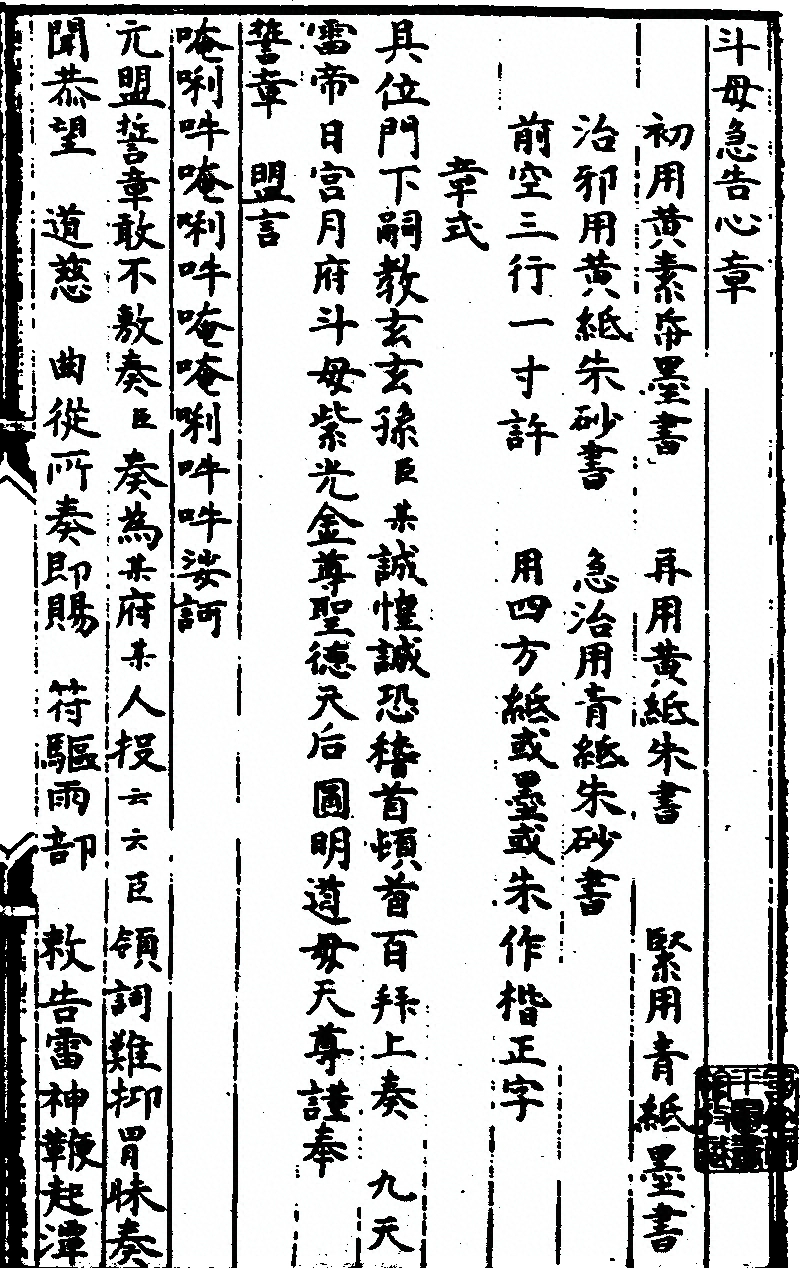 斗母急告心章
初用黃素帛墨書 再用黃紙朱書 緊用青紙墨書
治邪用黃紙朱砂書 急治用青紙朱砂書
前空三行一寸許 用四方紙或墨或朱作楷正字
章式
具位門下嗣教玄玄孫臣某誠惶誠恐稽首頓首百拜上奏 九天
雷帝日宮月府斗母紫光金尊聖德天后圓明道母天尊謹奉
誓章 盟言
唵唎吽唵唎吽唵唵唎吽吽娑訶
元盟誓章敢不敷奏臣 奏為某府某人投云云臣 領詞難抑冒昧奏
聞恭望 道慈 曲從所奏即賜 符驅雨部 敕告雷神鞭起潭